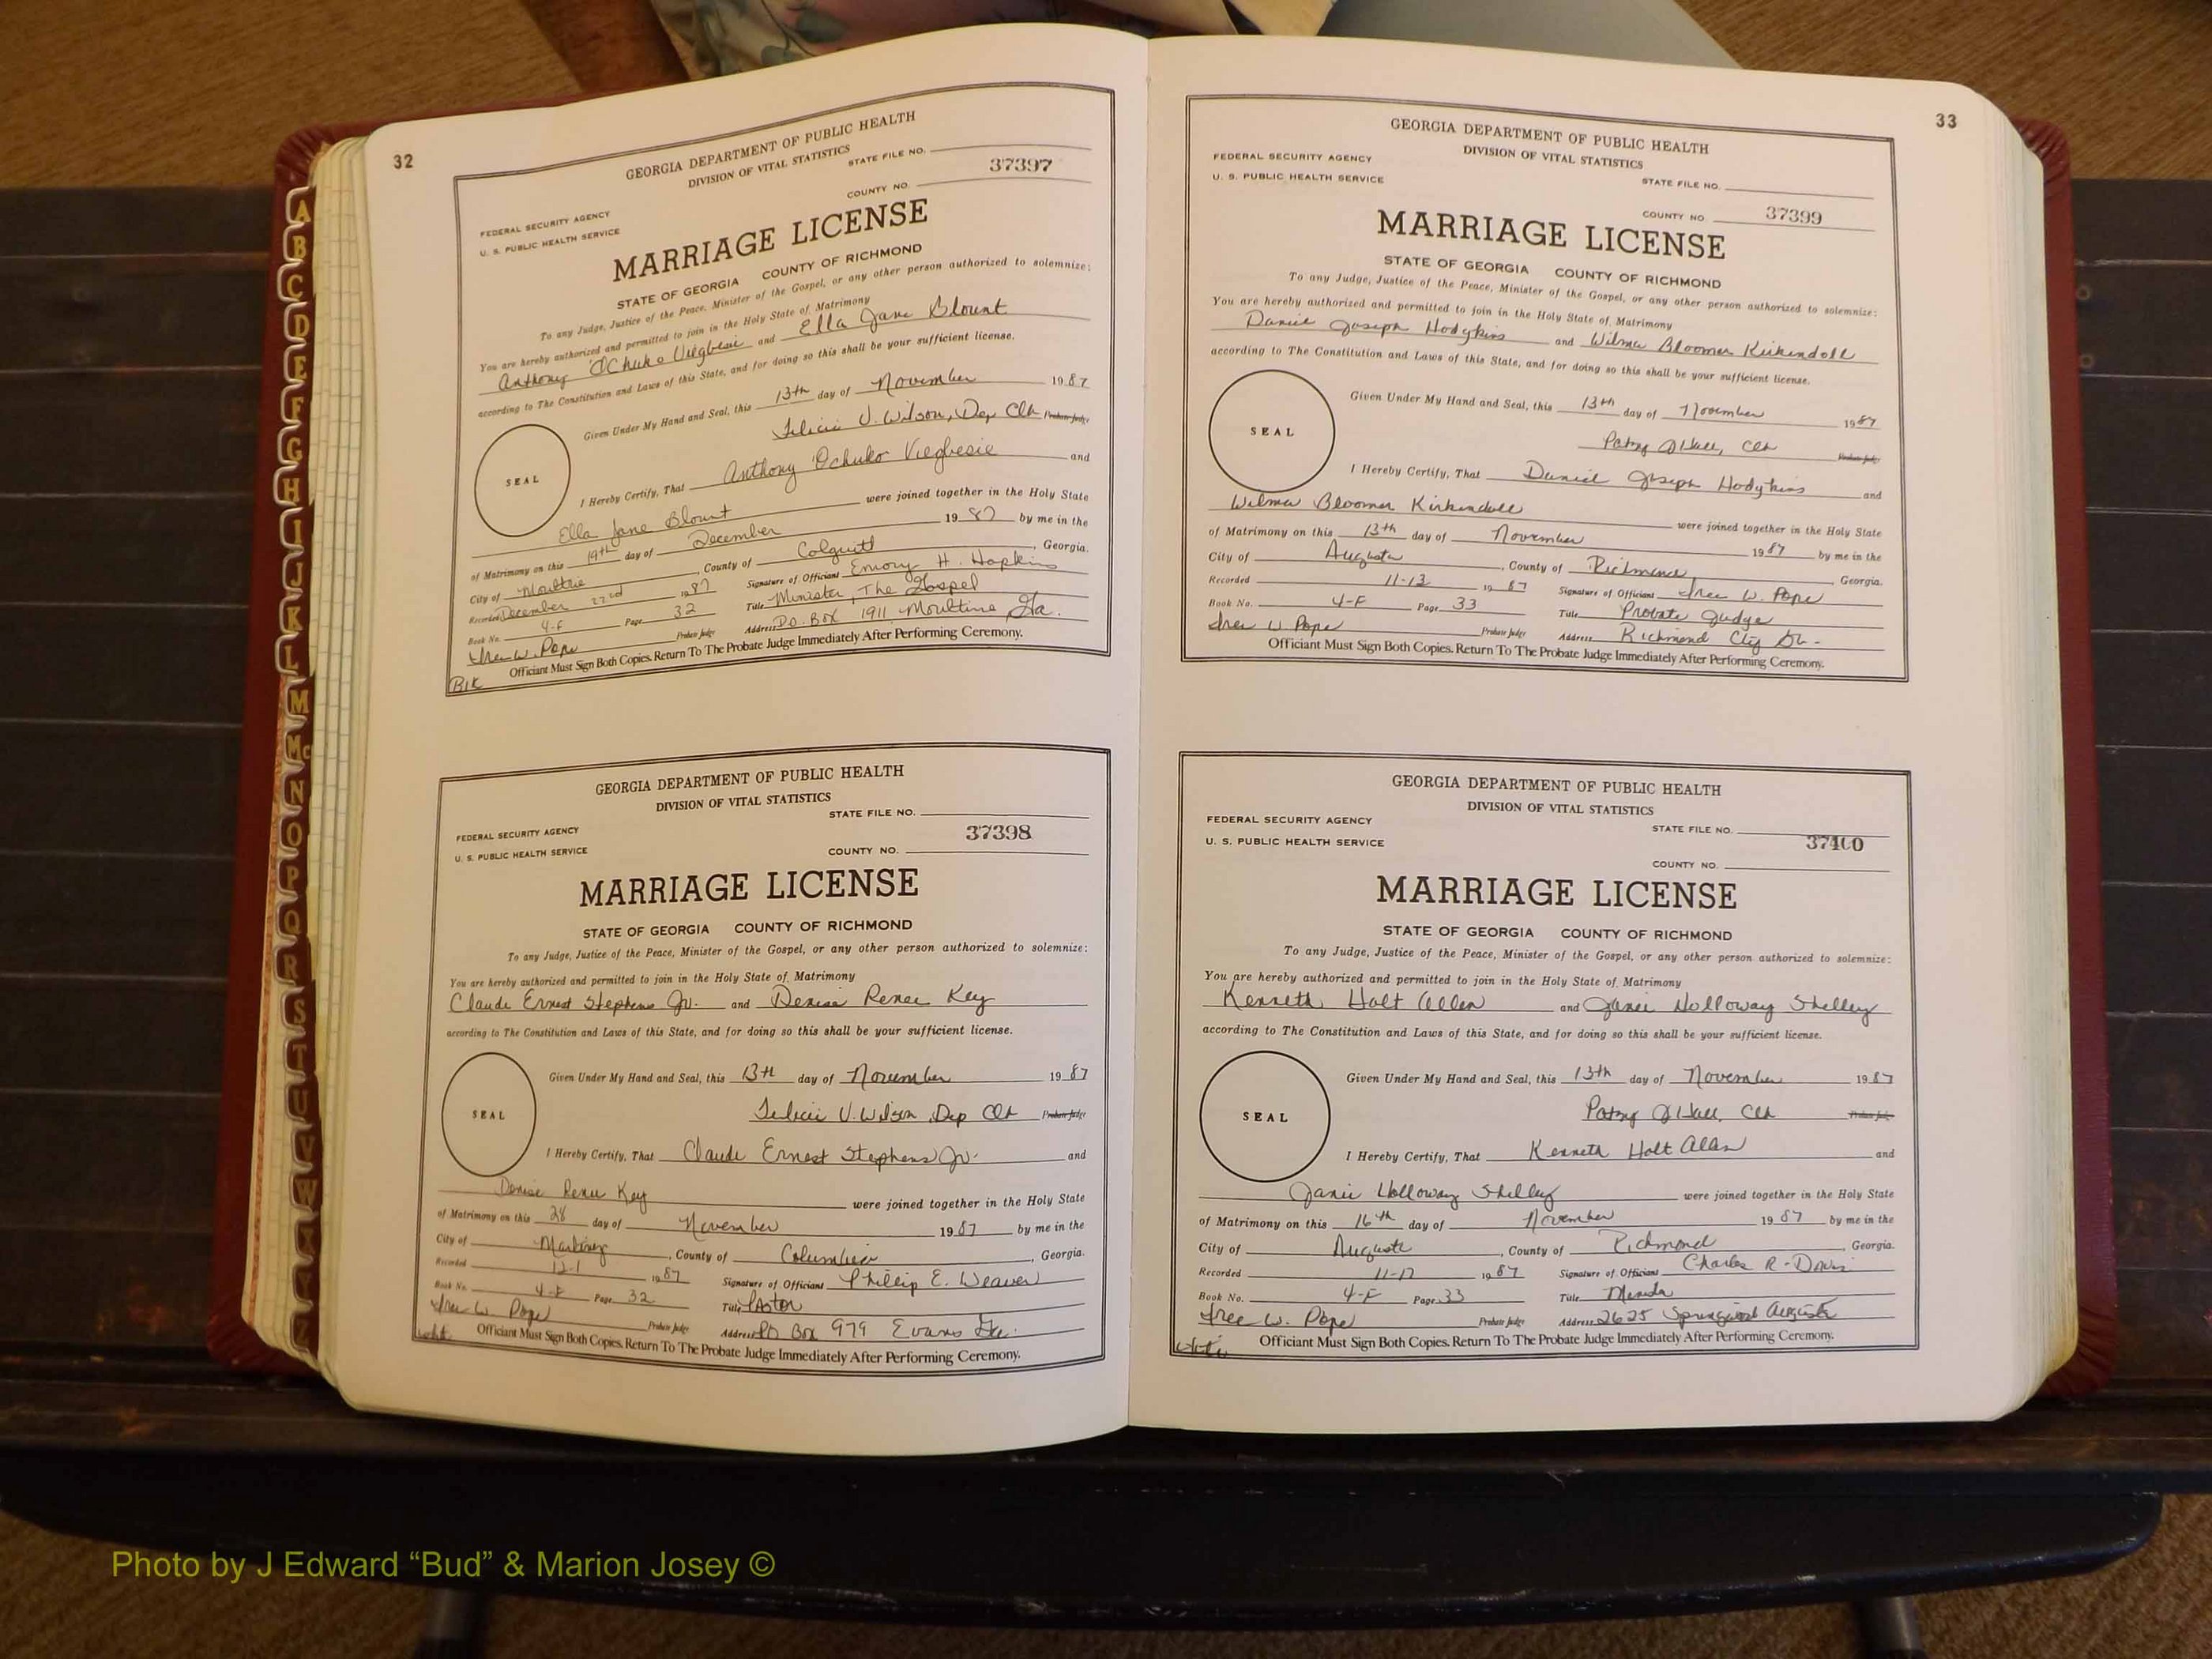 32
GEORGIA DEPARTMENT OF PUBLIC HEALTH
DIVISION OF VITAL STATISTICS
STATE FILE NO.
37397
FEDERAL SECURITY AGENCY
COUNTY NO.
U. S. PUBLIC HEALTH SERVICE
MARRIAGE LICENSE
STATE OF GEORGIA COUNTY OF RICHMOND
To any Judge, Justice of the Peace, Minister of the Gospel, or any other person authorized to solemnize:
You are hereby authorized and permitted to join in the Holy State of Matrimony
Anthony Ochuko and Ella Jane Blount
according to The Constitution and Laws of this State, and for doing so this shall be your sufficient license.
Given Under My Hand and Seal, this 13th day of November 1987
Felicia V. Wilson, Dep Clk Probate Judge
SEAL
I Hereby Certify, That Anthony Ochuko and
Ella Jane Blount were joined together in the Holy State
of Matrimony on this 19th day of December 1987 by me in the
City of Moultrie, County of Colquitt, Georgia.
Recorded December 22nd 1987 Signature of Officiant Emory H. Hopkins
Book No. 4-F Page 32 Title Minister, The Gospel
Probate Judge Address P.O. Box 1911 Moultrie Ga.
Officiant Must Sign Both Copies. Return To The Probate Judge Immediately After Performing Ceremony.
Blk
GEORGIA DEPARTMENT OF PUBLIC HEALTH
DIVISION OF VITAL STATISTICS
STATE FILE NO.
FEDERAL SECURITY AGENCY
37398
U. S. PUBLIC HEALTH SERVICE
COUNTY NO.
MARRIAGE LICENSE
STATE OF GEORGIA COUNTY OF RICHMOND
To any Judge, Justice of the Peace, Minister of the Gospel, or any other person authorized to solemnize:
You are hereby authorized and permitted to join in the Holy State of Matrimony
Claude Ernest Stephens Jr. and Denise Renee Key
according to The Constitution and Laws of this State, and for doing so this shall be your sufficient license.
Given Under My Hand and Seal, this 13th day of November 1987
Felicia V. Wilson, Dep Clk Probate Judge
SEAL
I Hereby Certify, That Claude Ernest Stephens Jr. and
Denise Renee Key were joined together in the Holy State
of Matrimony on this 28 day of November 1987 by me in the
City of Martinez, County of Columbia, Georgia.
Recorded 12-1 1987 Signature of Officiant Phillip E. Weaver
Book No. 4-F Page 32 Title Pastor
W. Pope Probate Judge Address PO Box 979 Evans Ga.
Officiant Must Sign Both Copies. Return To The Probate Judge Immediately After Performing Ceremony.
33
GEORGIA DEPARTMENT OF PUBLIC HEALTH
DIVISION OF VITAL STATISTICS
FEDERAL SECURITY AGENCY
U. S. PUBLIC HEALTH SERVICE
STATE FILE NO.
COUNTY NO 37399
MARRIAGE LICENSE
STATE OF GEORGIA COUNTY OF RICHMOND
To any Judge, Justice of the Peace, Minister of the Gospel, or any other person authorized to solemnize:
You are hereby authorized and permitted to join in the Holy State of Matrimony
Daniel Joseph Hodgkins and Wilma Bloomer Kirkendoll
according to The Constitution and Laws of this State, and for doing so this shall be your sufficient license.
Given Under My Hand and Seal, this 13th day of November 1987
Patsy Hall, Clk Probate Judge
SEAL
I Hereby Certify, That Daniel Joseph Hodgkins and
Wilma Bloomer Kirkendoll were joined together in the Holy State
of Matrimony on this 13th day of November 1987 by me in the
City of Augusta, County of Richmond, Georgia.
Recorded 11-13 1987 Signature of Officiant W. Pope
Book No. 4-F Page 33 Title Probate Judge
W Pope Probate Judge Address Richmond Cty
Officiant Must Sign Both Copies. Return To The Probate Judge Immediately After Performing Ceremony.
GEORGIA DEPARTMENT OF PUBLIC HEALTH
DIVISION OF VITAL STATISTICS
FEDERAL SECURITY AGENCY
STATE FILE NO.
U. S. PUBLIC HEALTH SERVICE
37400
COUNTY NO.
MARRIAGE LICENSE
STATE OF GEORGIA COUNTY OF RICHMOND
To any Judge, Justice of the Peace, Minister of the Gospel, or any other person authorized to solemnize:
You are hereby authorized and permitted to join in the Holy State of Matrimony
Kenneth Holt Allen and Janie Holloway Shelley
according to The Constitution and Laws of this State, and for doing so this shall be your sufficient license.
Given Under My Hand and Seal, this 13th day of November 1987
Patsy Hall, Clk Probate Judge
SEAL
I Hereby Certify, That Kenneth Holt Allen and
Janie Holloway Shelley were joined together in the Holy State
of Matrimony on this 16th day of November 1987 by me in the
City of Augusta, County of Richmond, Georgia.
Recorded 11-17 1987 Signature of Officiant Charles R. Davis
Book No. 4-F Page 33 Title
W. Pope Probate Judge Address 2625 Augusta
Officiant Must Sign Both Copies. Return To The Probate Judge Immediately After Performing Ceremony.
A
B
C
D
E
F
G
H
I
J
K
L
M
Mc
N
O
P
Q
R
S
T
U
V
W
Photo by J Edward “Bud” & Marion Josey ©